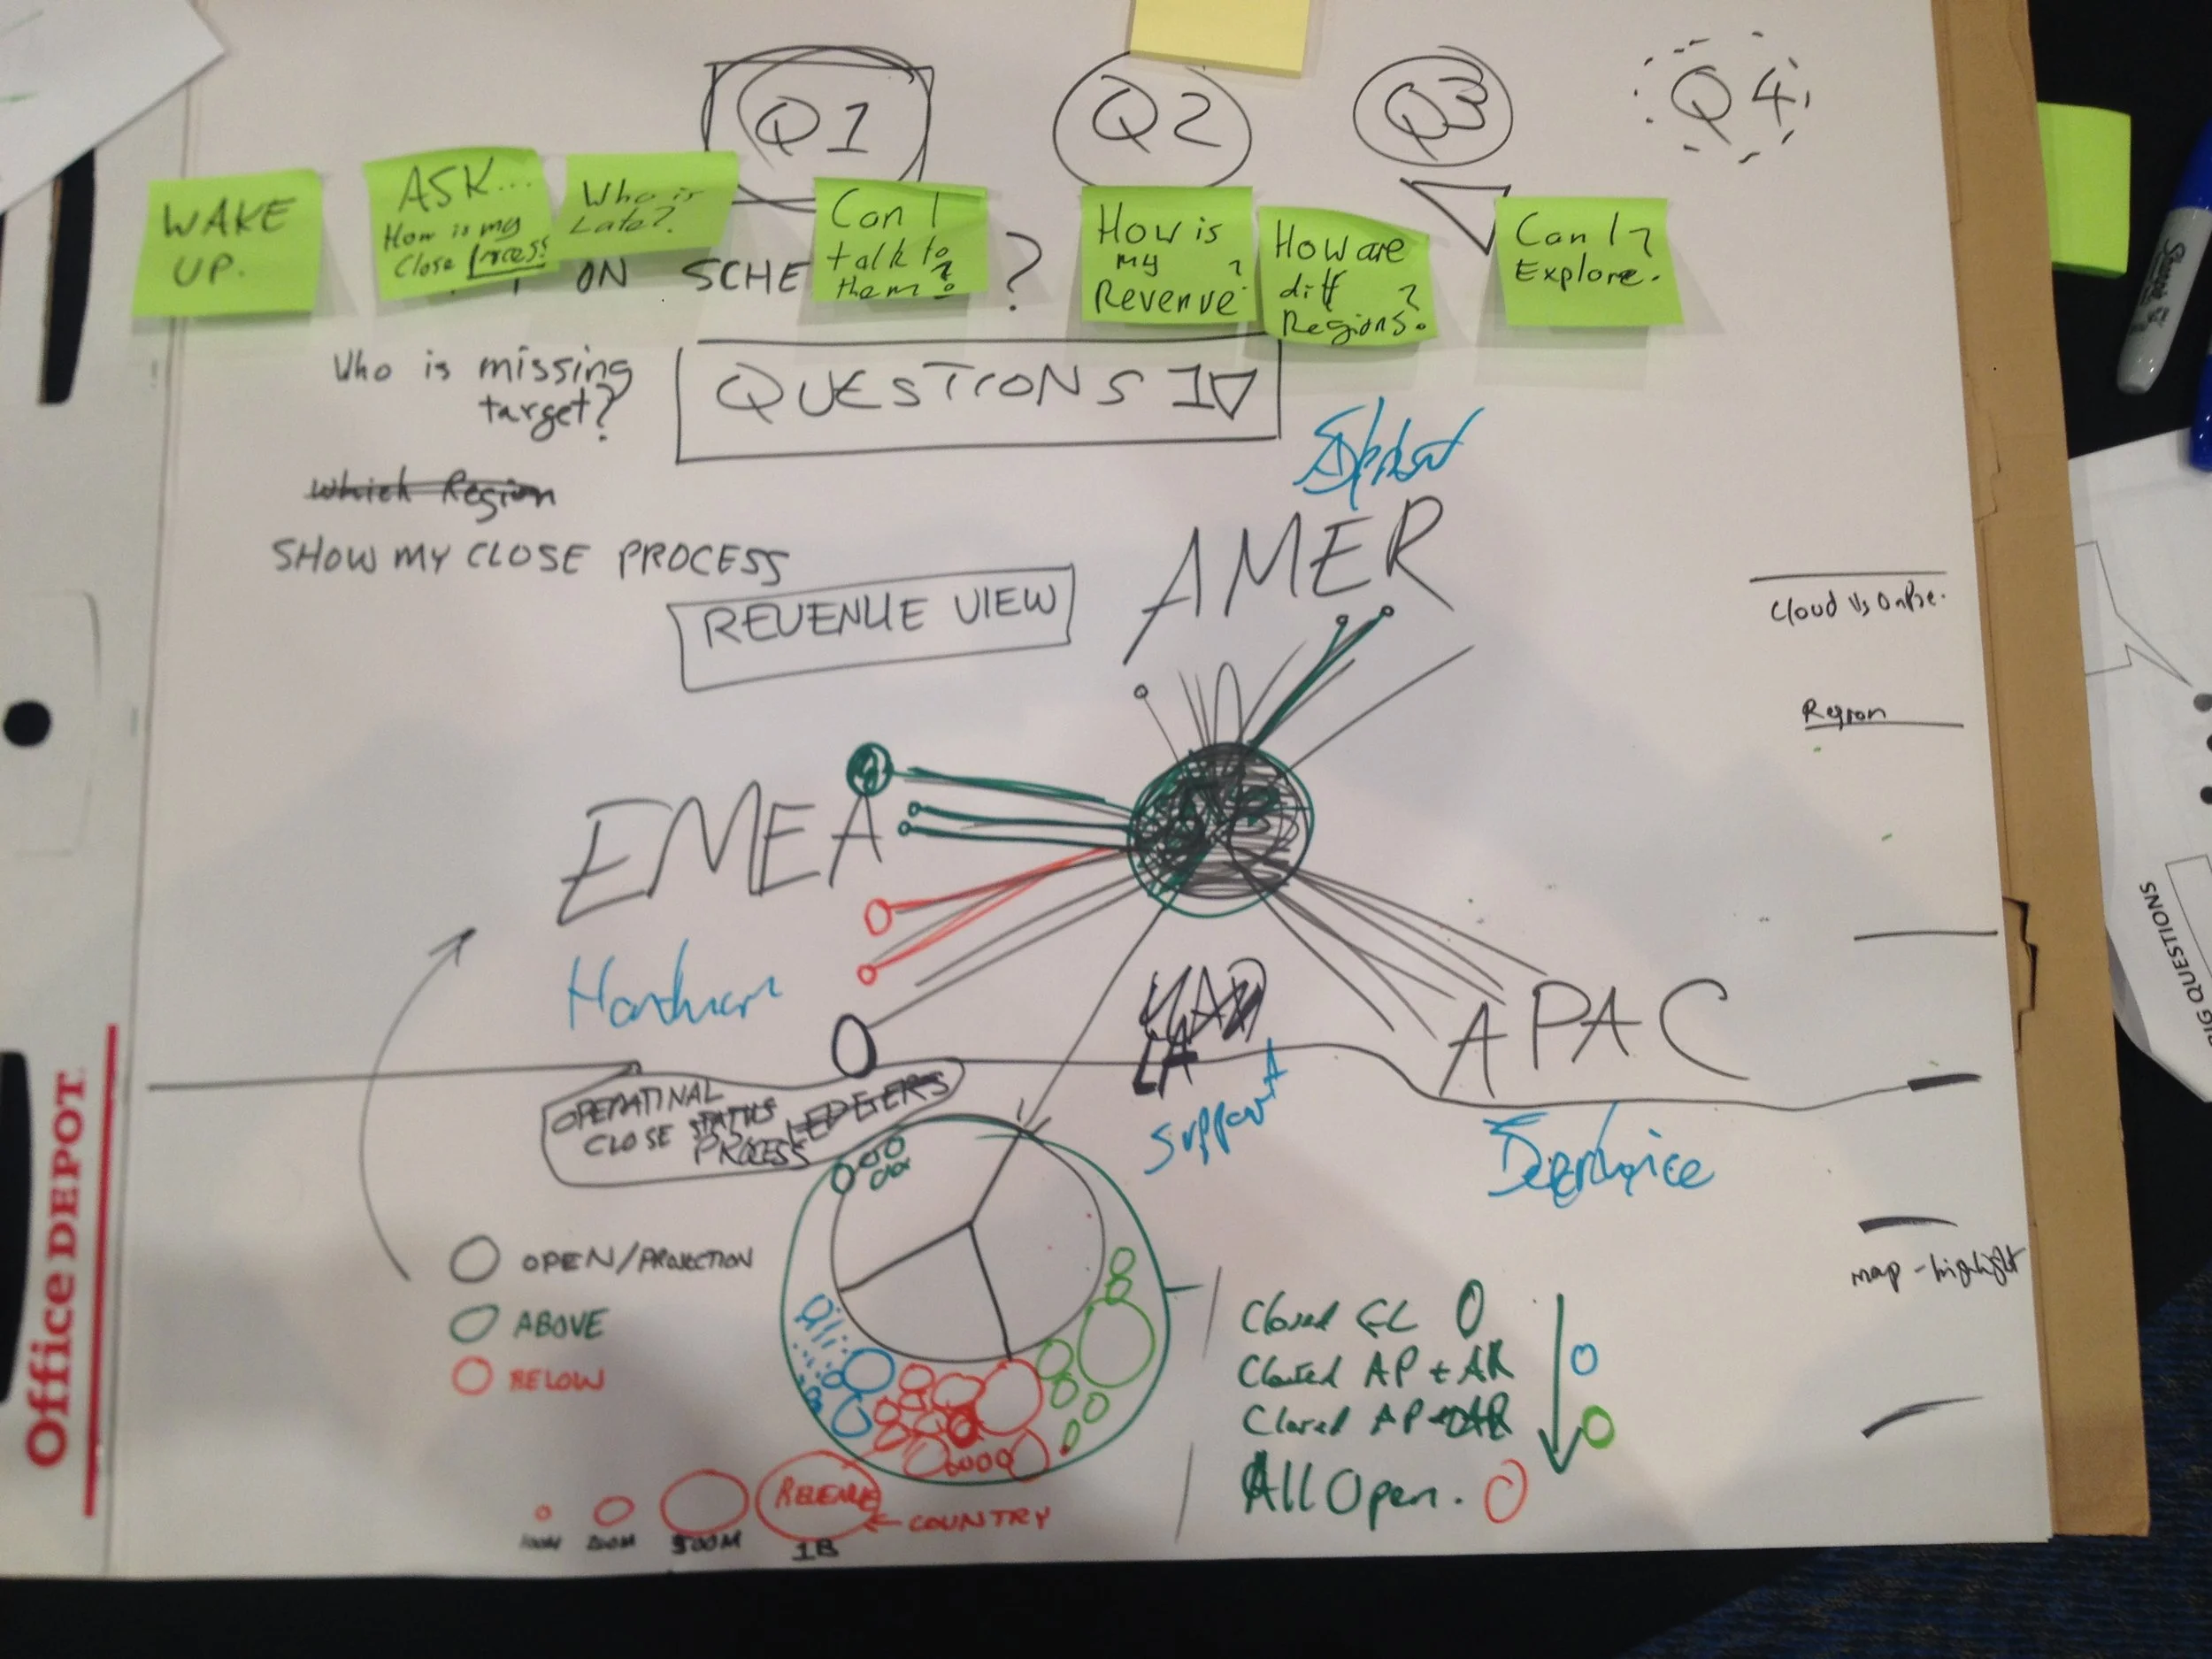 Q1
Q2
Q3
Q4
WAKE
UP.
ASK...
How is my
Close Process?
Who is
Late?
Can I
talk to
them?
How is
my
Revenue?
How are
diff
Regions?
Can I?
Explore.
ON SCHE ?
Who is missing
target?
QUESTIONS
Which Region
SHOW MY CLOSE PROCESS
REVENUE VIEW
AMER
Cloud Vs OnPre.
Region
EMEA
Hardware
LA
APAC
Support
OPERATINAL
CLOSE STATUS LEDGERS
PROCESS
OPEN/PROJECTION
ABOVE
BELOW
map - highlight
Closed GL
Closed AP + AR
Closed AP
All Open.
REVENUE
COUNTRY
100M
200M
500M
1B
Office DEPOT
Sharpie
BIG QUESTIONS